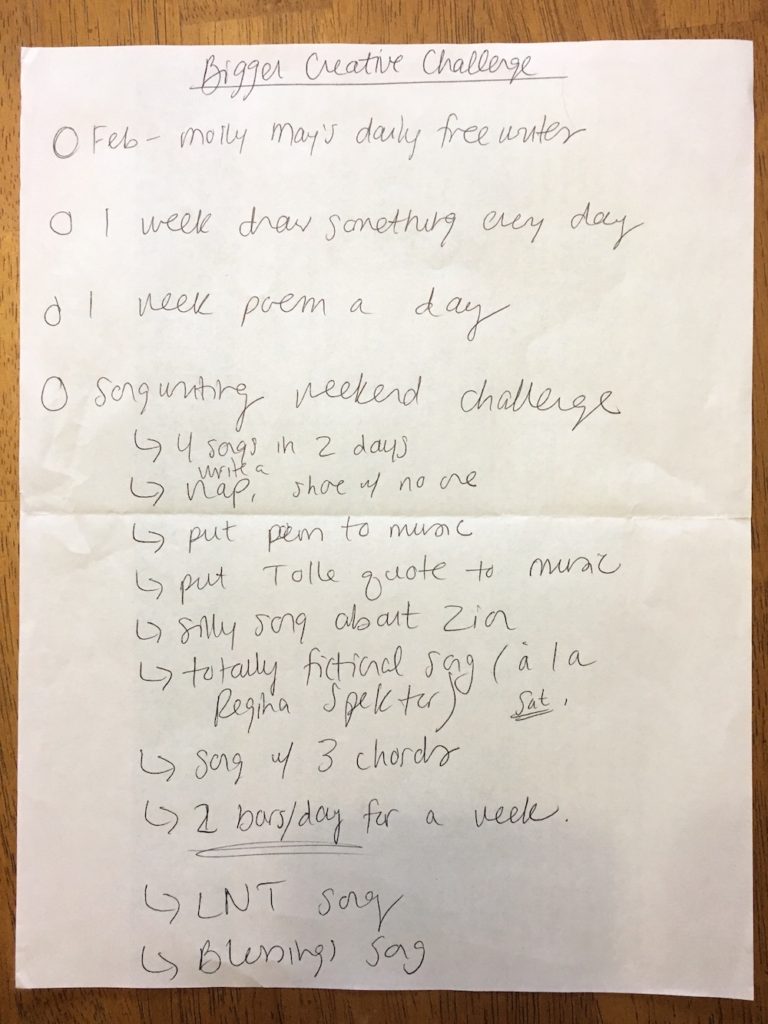 Bigger Creative Challenge
O Feb - molly may's daily free writer
O 1 week draw something every day
O 1 week poem a day
O Songwriting weekend challenge
↳ 4 songs in 2 days
write a
↳ rap, share w/ no one
↳ put poem to music
↳ put Tolle quote to music
↳ silly song about Zion
↳ totally fictional song (à la
Regina Spektor) Sat.
↳ song w/ 3 chords
↳ 2 bars/day for a week.
↳ LNT song
↳ Blessings song